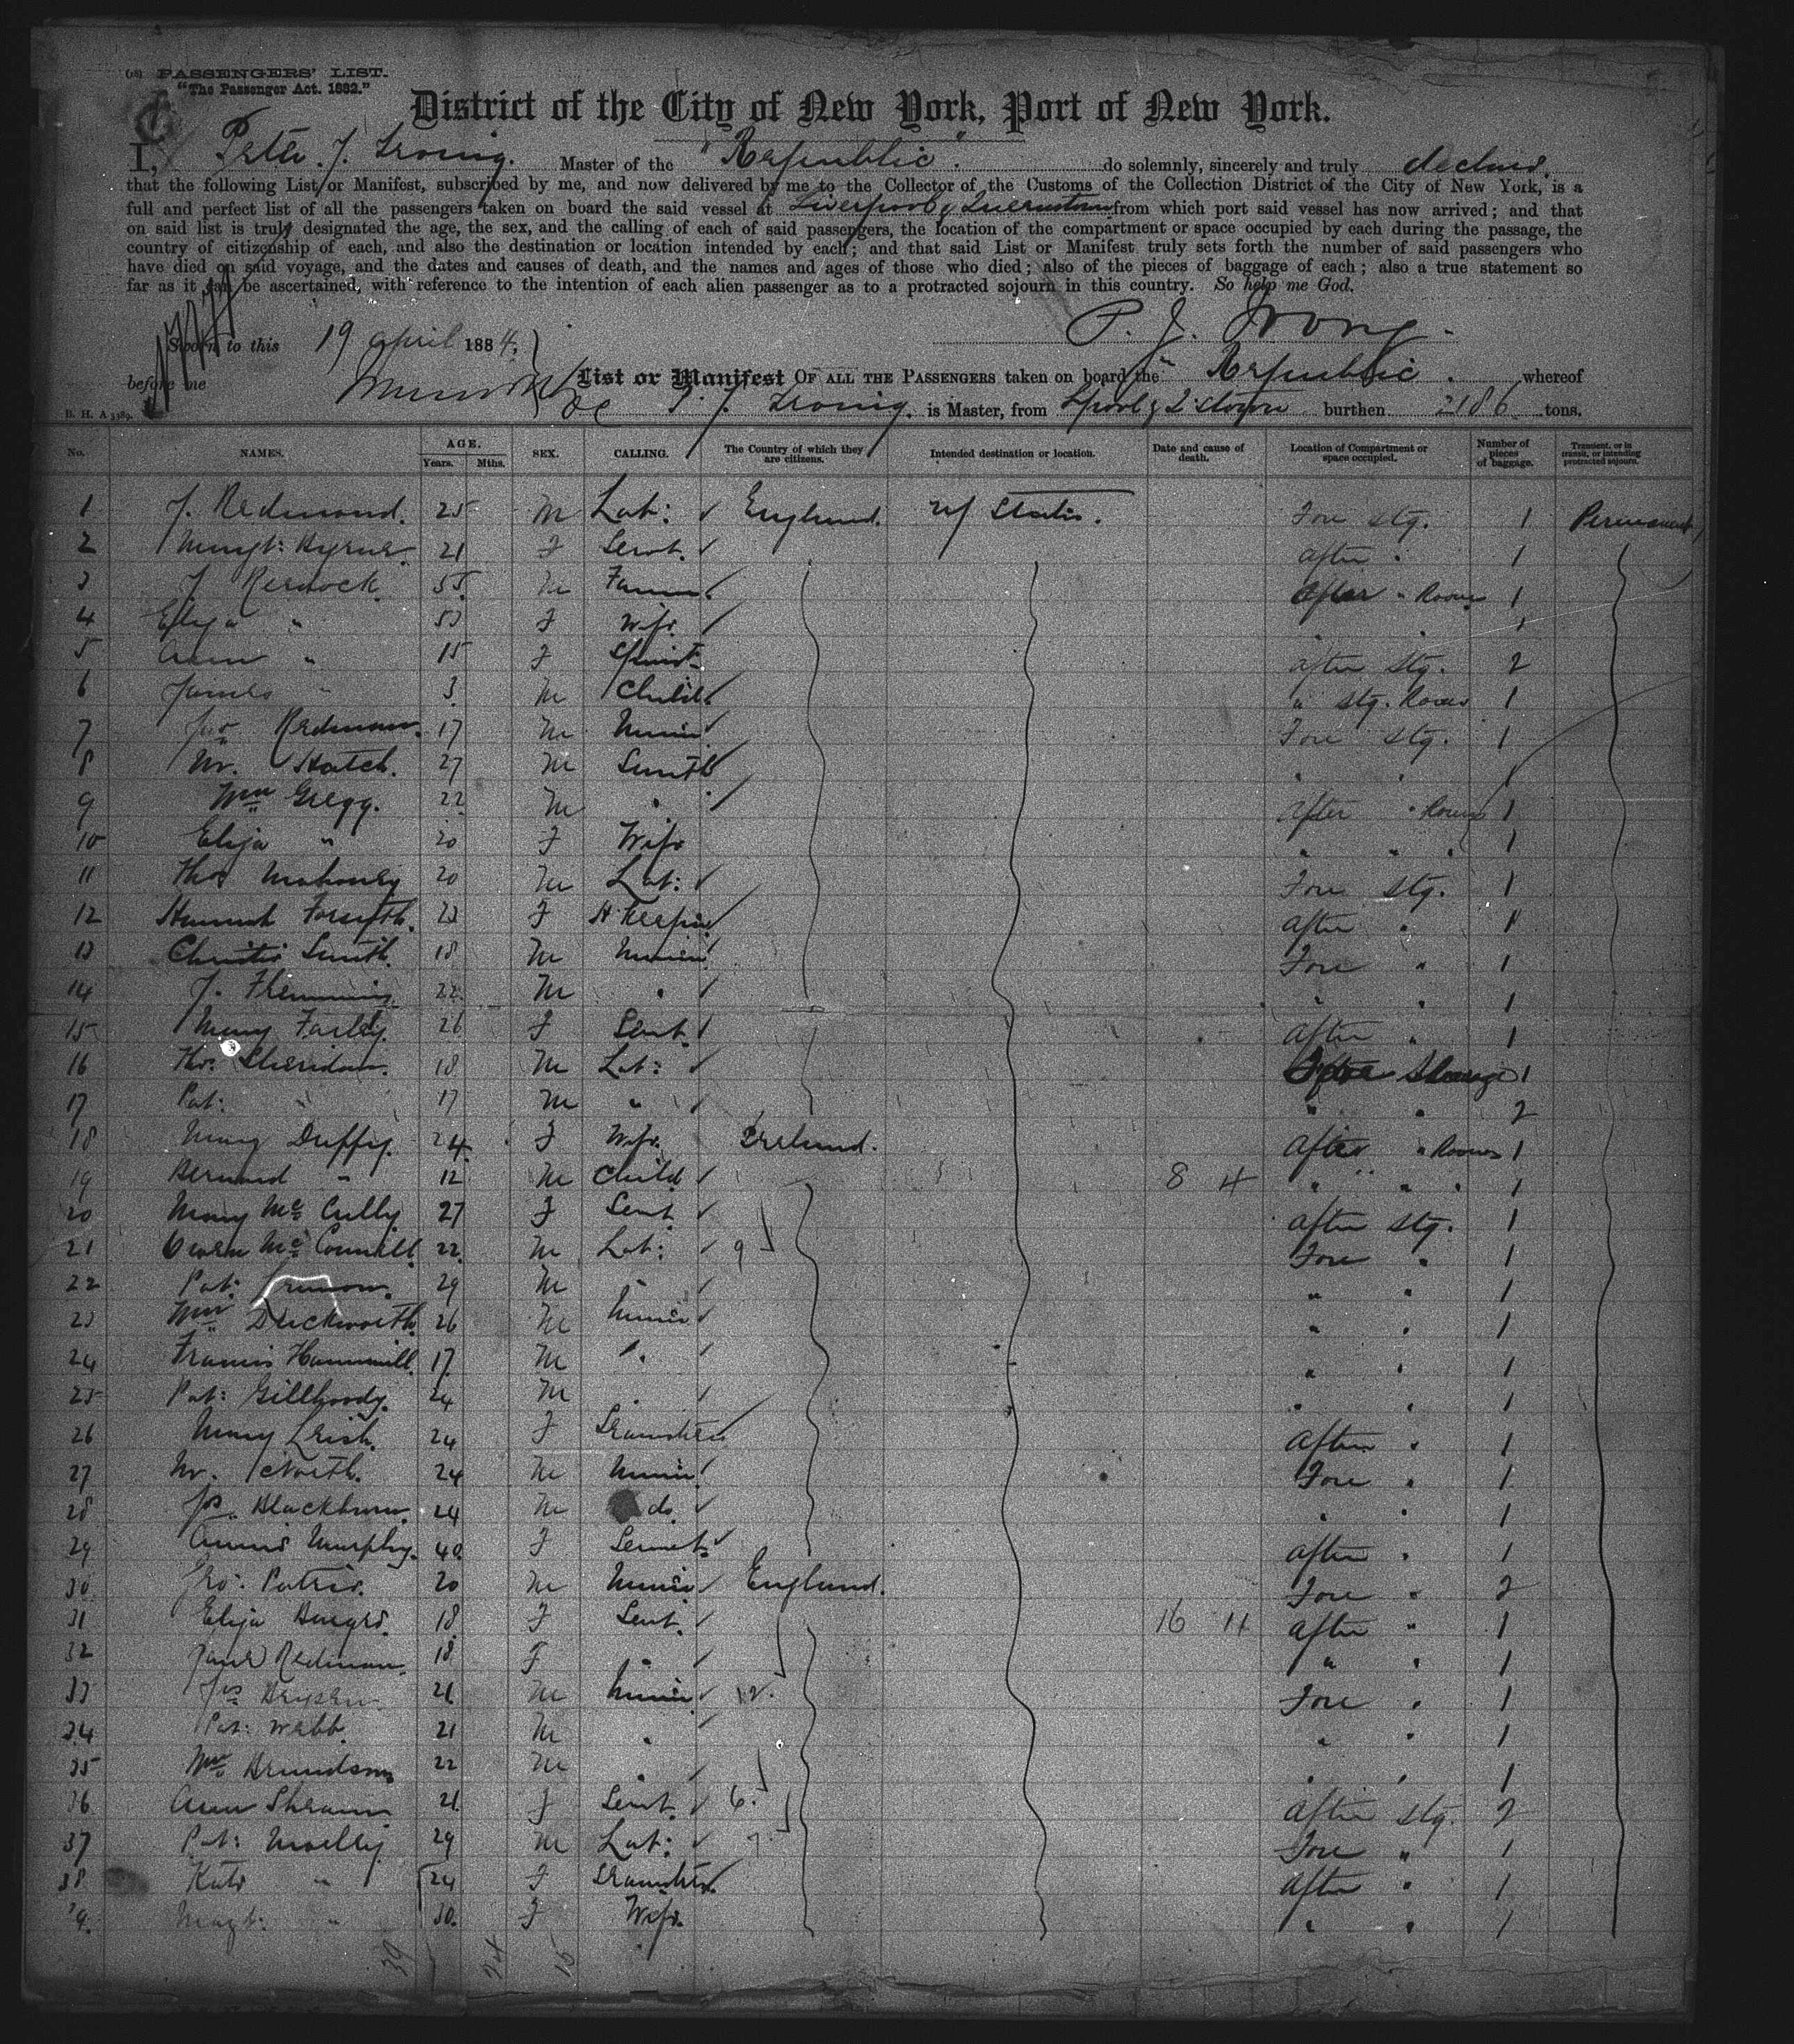 PASSENGERS' LIST.
"The Passenger Act. 1882."
District of the City of New York, Port of New York.
I, Peter J. Irving. Master of the "Republic". do solemnly, sincerely and truly declare.
that the following List or Manifest, subscribed by me, and now delivered by me to the Collector of the Customs of the Collection District of the City of New York, is a
full and perfect list of all the passengers taken on board the said vessel at Liverpool & Queenstown from which port said vessel has now arrived; and that
on said list is truly designated the age, the sex, and the calling of each of said passengers, the location of the compartment or space occupied by each during the passage, the
country of citizenship of each, and also the destination or location intended by each; and that said List or Manifest truly sets forth the number of said passengers who
have died on said voyage, and the dates and causes of death, and the names and ages of those who died; also of the pieces of baggage of each; also a true statement so
far as it can be ascertained, with reference to the intention of each alien passenger as to a protracted sojourn in this country. So help me God.
P. J. Irving.
Sworn to this 19 April 1884.
before me
List or Manifest OF ALL THE PASSENGERS taken on board the "Republic". whereof
P. J. Irving. is Master, from Lpool & Q'stown burthen 2186 tons.
No. NAMES. AGE. Years. Mths. SEX. CALLING. The Country of which they are citizens. Intended destination or location. Date and cause of death. Location of Compartment or space occupied. Number of pieces of baggage. Transient, or in transit, or intending protracted sojourn.
1 J. Redmond. 25 M Lab: England. U/ States. Fore Stg. 1 Permanent
2 Margt: Byrne 21 F Servt. After " 1
3 J. 55 M Farmer After " Room 1
4 Eliza " F Wife " " 1
5 Ann " 15 F Spinst. After Stg. 2
6 James " 3 M Child " Stg. Room 1
7 Jno Redman. 17 M Miner Fore Stg. 1
8 W. Hatch. 27 M Smith " " 1
9 Wm Gregg. 22 M " After " Room 1
10 Eliza " 20 F Wife " " " 1
11 Thos Mahoney 20 M Lab: Fore Stg. 1
12 Hannah Forsyth. 23 F H. Keeper After " 1
13 Smith. 18 M Miner Fore " 1
14 J. Flemming 22 M " " " 1
15 Mary Farley. 26 F Servt. After " 1
16 Tho: Sheridan. 18 M Lab: Fore Steerage 1
17 Pat: " 17 M " " " 2
18 Mary Duffy. 24 F Wife. Ireland. After " Room 1
19 Bernard " 12 M Child 8 4 " " " 1
20 Mary Mc Cully 27 F Servt After Stg. 1
21 Owen Mc Connell 22 M Lab: 9 Fore " 1
22 Pat: 29 M " " " 1
23 Wm Duckworth 26 M Miner " " 1
24 Francis Hammill 17 M " " " 1
25 Pat: Gillhooly. 24 M " " " 1
26 Mary 24 F Seamstress After " 1
27 W. North. 24 M Miner Fore " 1
28 Jos Blackburn 24 M do. " " 1
29 Annie Murphy. 40 F Servt. After " 1
30 Jno: 20 M Miner England. Fore " 2
31 Eliza 18 F Servt. 16 11 After " 1
32 Jane Redman 18 F " " " 1
33 Jos 21 M Miner 12. Fore " 1
34 Pat: Webb. 21 M " " " 1
35 Wm 22 M " " " 1
36 Ann 21 F Servt. 6. After Stg. 2
37 Pat: 29 M Lab: 7. Fore " 1
38 Kate " 24 F Seamstress After " 1
39. Margt: " 30. F Wife. " " 1
39 24 15